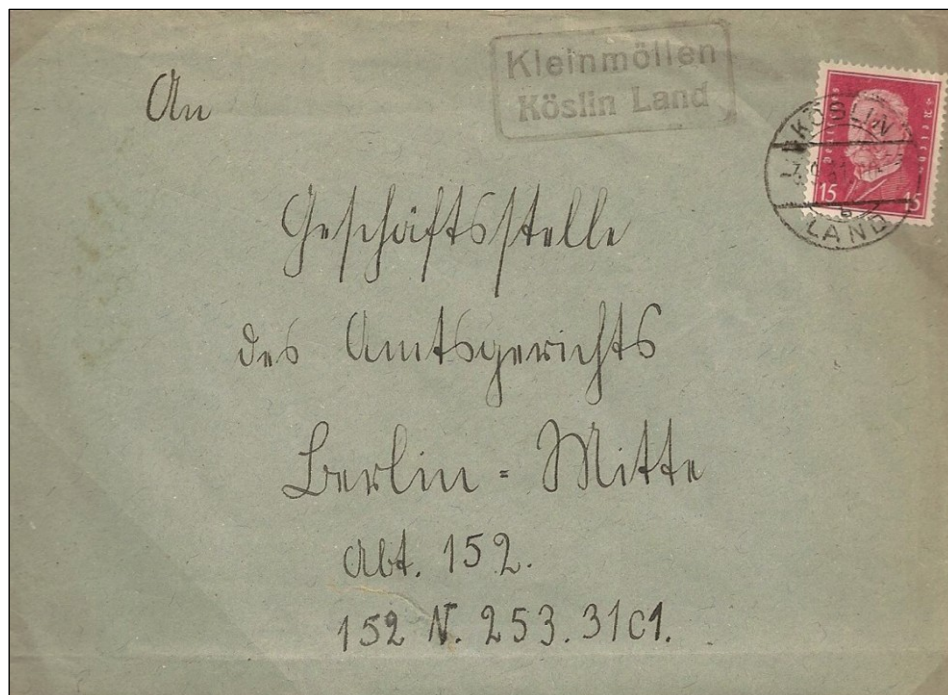 An
Kleinmöllen
Köslin Land
KÖSLIN
LAND
15 15
Geschäftsstelle
des Amtsgerichts
Berlin = Mitte
Abt. 152.
152 N. 253. 31 C1.